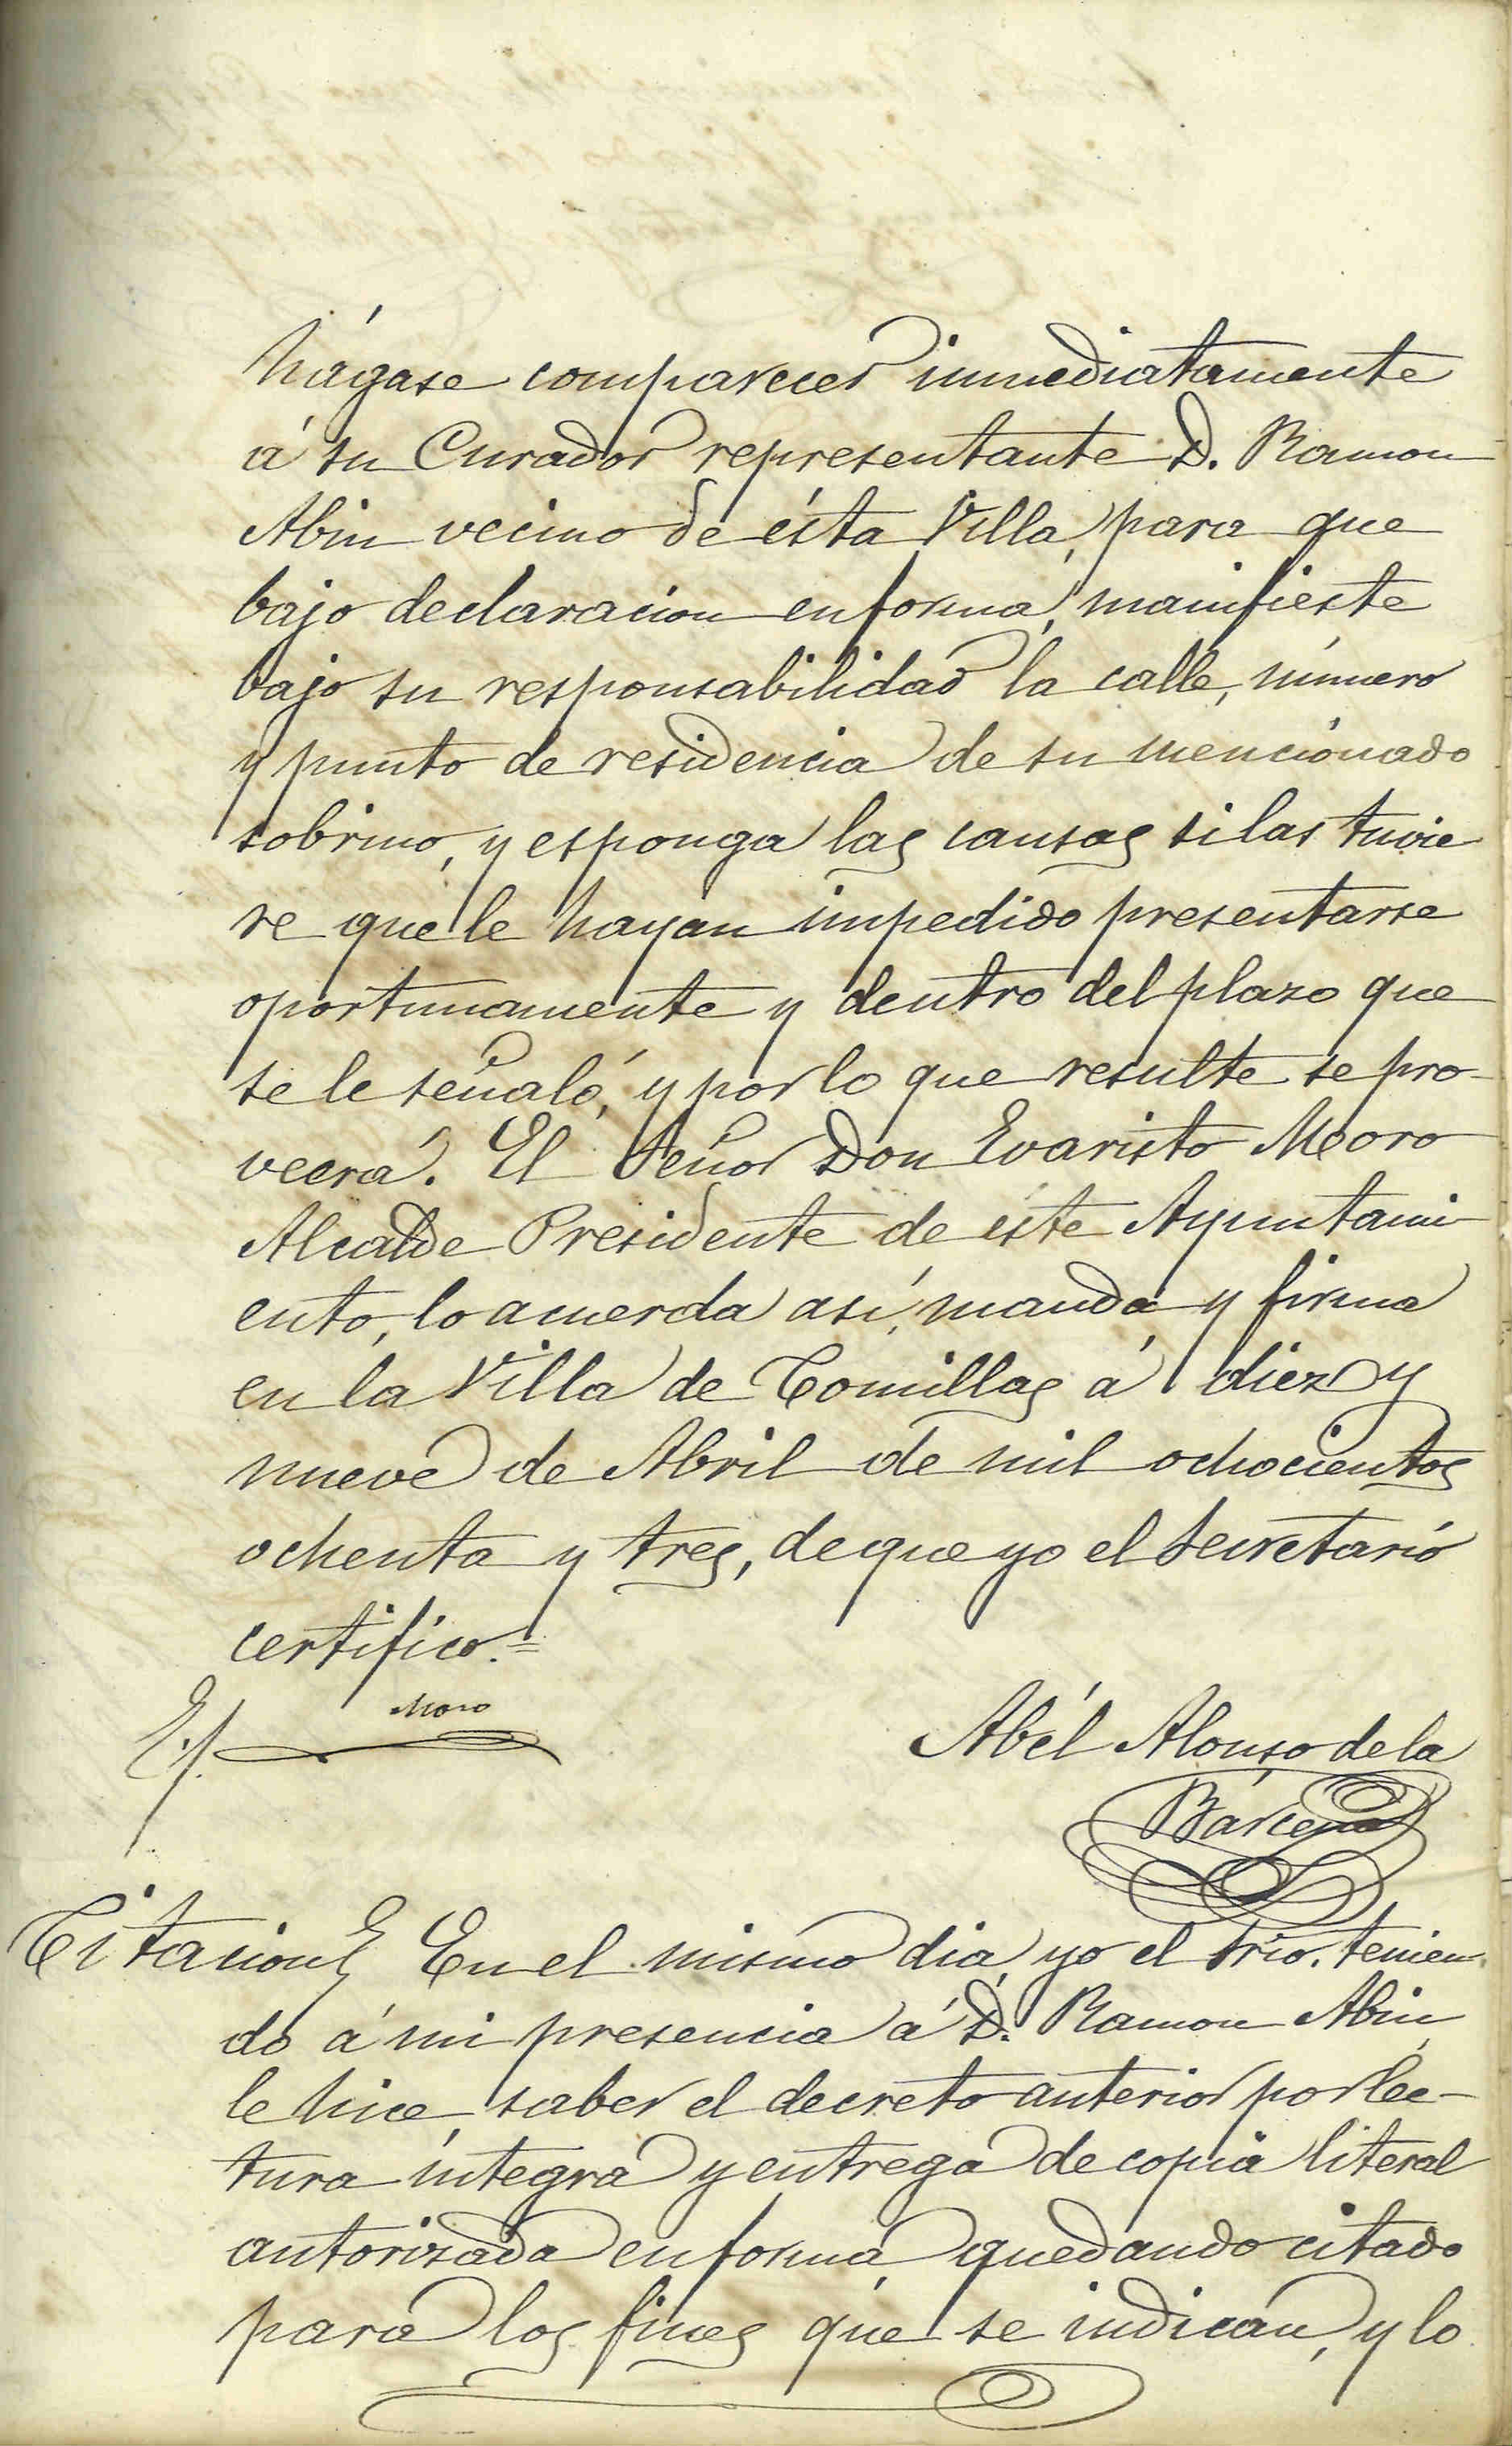 hágase comparecer inmediatamente
á su Curador representante D. Ramon
Abin vecino de ésta Villa, para que
bajo declaracion en forma, manifieste
bajo su responsabilidad la calle, número
y punto de residencia de su mencionado
sobrino, y esponga las causas si las tuvie
re que le hayan impedido presentarse
oportunamente y dentro del plazo que
se le señaló, y por lo que resulte se pro-
veerá. El Señor Don Evaristo Moro
Alcalde Presidente de éste Ayuntami
ento, lo acuerda así, manda, y firma
en la Villa de Comillas á diez y
nueve de Abril de mil ochocientos
ochenta y tres, de que yo el Secretario
certifico.=
E. Moro
Abél Alonso de la
Bárcena
Citacion En el mismo dia, yo el Srio. tenien
do á mi presencia á D. Ramon Abin,
le hice saber el decreto anterior por lec-
tura íntegra y entrega de copia literal
autorizada en forma, quedando citado
para los fines que se indican, y lo